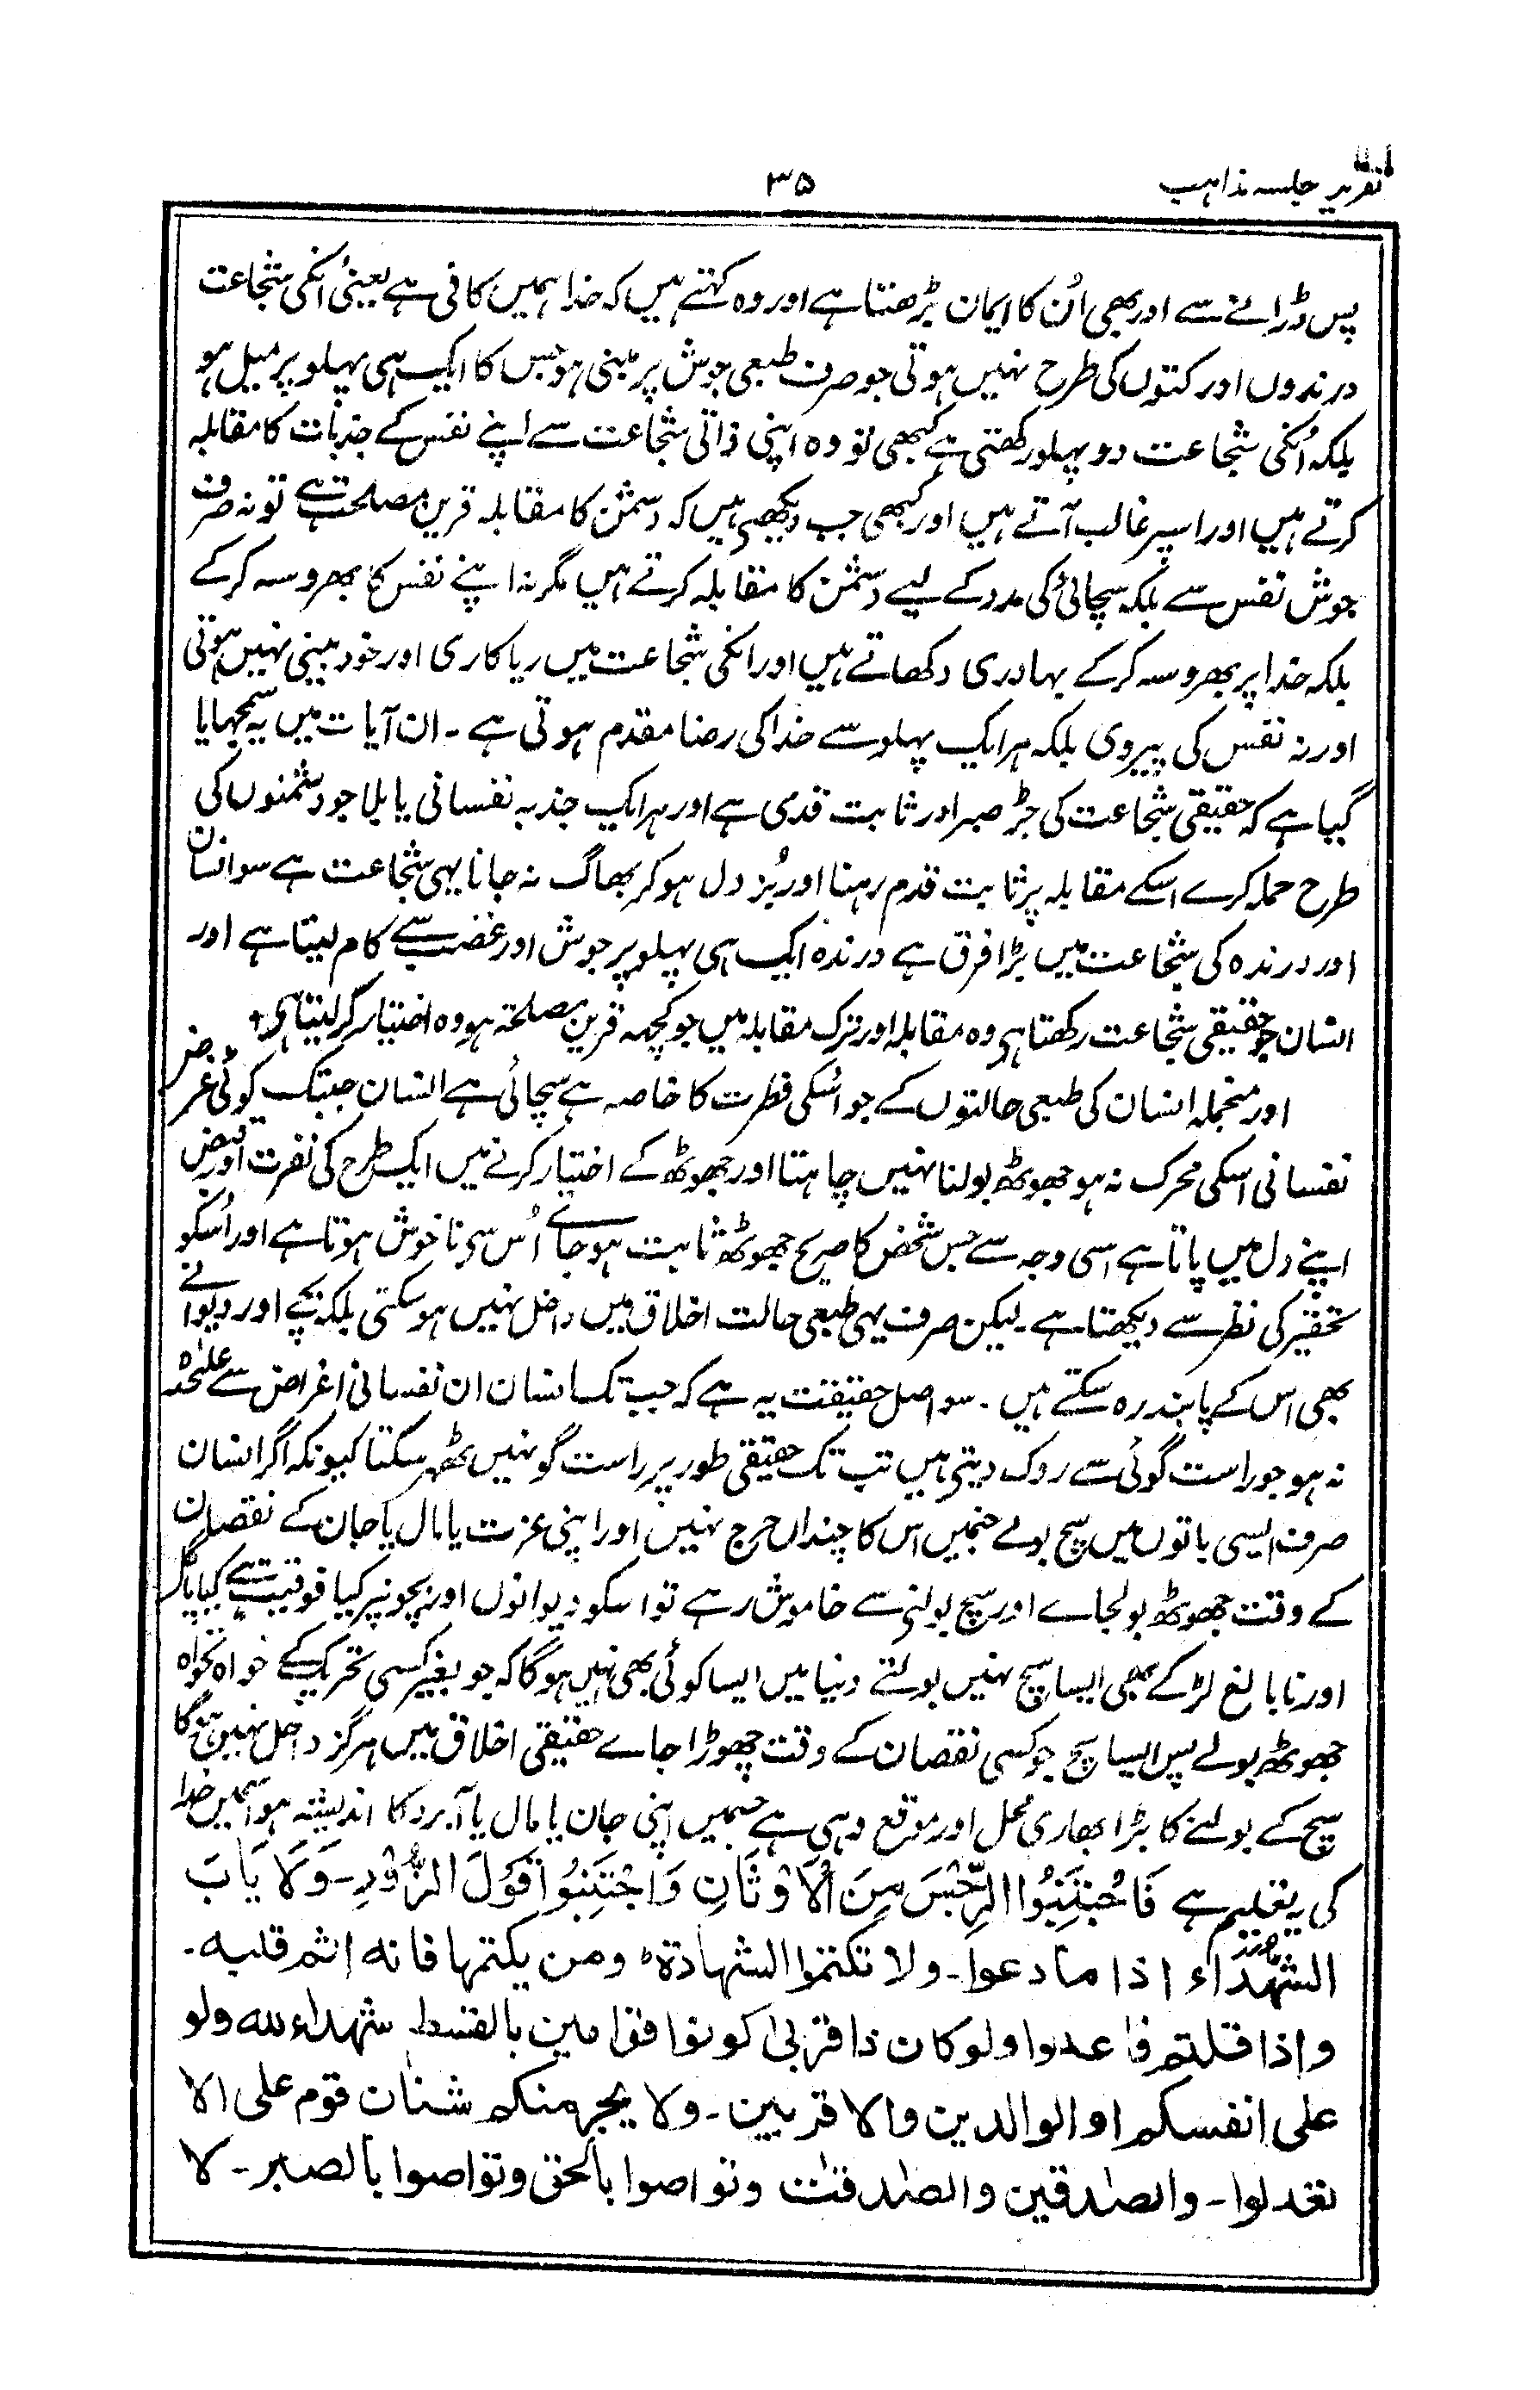 تقریر جلسہ مذاہب
۳۵
پس ڈرانے سے اور بھی اُن کا ایمان بڑھتا ہے اور وہ کہتے ہیں کہ خدا ہمیں کافی ہے یعنے اُنکی شجاعت
درندوں اور کتوں کی طرح نہیں ہوتی جو صرف طبعی جوش پر مبنی ہو جس کا ایک ہی پہلو پر میل ہو
بلکہ اُنکی شجاعت دو پہلو رکھتی ہے کبھی تو وہ اپنی ذاتی شجاعت سے اپنے نفس کے جذبات کا مقابلہ
کرتے ہیں اور اسپر غالب آتے ہیں اور کبھی جب دیکھتے ہیں کہ دشمن کا مقابلہ قرین مصلحت ہے تو نہ صرف
جوش نفس سے بلکہ سچائی کی مدد کے لیے دشمن کا مقابلہ کرتے ہیں مگر نہ اپنے نفس کا بھروسہ کر کے
بلکہ خدا پر بھروسہ کر کے بہادری دکھاتے ہیں اور انکی شجاعت میں ریاکاری اور خود بینی نہیں ہوتی
اور نہ نفس کی پیروی بلکہ ہر ایک پہلو سے خدا کی رضا مقدم ہوتی ہے ۔ ان آیات میں یہ سمجہایا
گیا ہے کہ حقیقی شجاعت کی جڑ صبر اور ثابت قدمی ہے اور ہر ایک جذبہ نفسانی یا بلا جو دشمنوں کی
طرح حملہ کرے اسکے مقابلہ پر ثابت قدم رہنا اور بُزدل ہو کر بھاگ نہ جانا یہی شجاعت ہے سو انسان
اور درندہ کی شجاعت میں بڑا فرق ہے درندہ ایک ہی پہلو پر جوش اور غضب سے کام لیتا ہے اور
انسان جو حقیقی شجاعت رکھتا ہی وہ مقابلہ اور ترک مقابلہ میں جو کچہہ قرین مصلحت ہو وہ اختیار کر لیتا ہی +
اور منجملہ انسان کی طبعی حالتوں کے جو اُسکی فطرت کا خاصہ ہے سچائی ہے انسان جبتک کوئی غرض
نفسانی اسکی محرک نہ ہو جھوٹھ بولنا نہیں چاہتا اور جھوٹھ کے اختیار کرنے میں ایک طرح کی نفرت اور قبض
اپنے دل میں پاتا ہے اسی وجہ سے جس شخص کا صریح جھوٹھ ثابت ہو جائے اُس سی ناخوش ہوتا ہے اور اُسکو
تحقیر کی نظر سے دیکھتا ہے ۔ لیکن صرف یہی طبعی حالت اخلاق میں داخل نہیں ہو سکتی بلکہ بچے اور دیوانے
بھی اس کے پابند رہ سکتے ہیں ۔ سو اصل حقیقت یہ ہے کہ جب تک انسان ان نفسانی اغراض سے علیحدہ
نہ ہو جو راست گوئی سے روک دیتی ہیں تب تک حقیقی طور پر راست گو نہیں ٹھہر سکتا کیونکہ اگر انسان
صرف ایسی باتوں میں سچ بولے جنمیں اس کا چنداں حرج نہیں اور اپنی عزت یا مال یا جان کے نقصان
کے وقت جھوٹھ بولجاے اور سچ بولنی سے خاموش رہے تو اسکو دیوانوں اور بچونپر کیا فوقیت ہے کیا پاگل
اور نابالغ لڑکے بھی ایسا سچ نہیں بولتے دنیا میں ایسا کوئی بھی نہیں ہوگا کہ جو بغیر کسی تحریک کے خواہ نخواہ
جھوٹھ بولے پس ایسا سچ جو کسی نقصان کے وقت چھوڑا جاے حقیقی اخلاق میں ہرگز داخل نہیں ہوگا
سچ کے بولنے کا بڑا بھاری محل اور موقع وہی ہے جسمیں اپنی جان یا مال یا آبرو کا اندیشہ ہو اسمیں خدا
کی یہ تعلیم ہے فَاجْتَنِبُوا الرِّجْسَ مِنَ الْاَوْثَانِ وَاجْتَنِبُوا قَوْلَ الزُّوْرِ ۔ وَلَا یَابَ
الشُّهَدَآء اذا ما دعوا ۔ ولا تکتموا الشهادة ط ومن یکتمها فانه اثم قلبه ۔
واذا قلتم فاعدلوا ولو کان ذا قربیٰ کونوا قوامین بالقسط شهداء لله ولو
علی انفسکم او الوالدین والاقربین ۔ ولا یجرمنکم شنان قوم علی الا
تعدلوا ۔ والصٰدقین والصٰدقٰت وتواصوا بالحق وتواصوا بالصبر ۔ لا